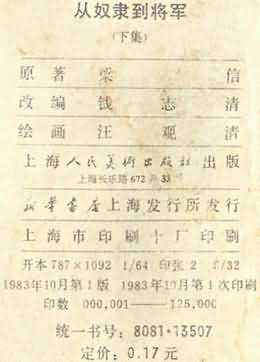 从奴隶到将军
(下集)
原著 梁信
改编 钱志清
绘画 汪观清
上海人民美術出版社出版
上海长乐路672弄33号
新華書店上海发行所发行
上海市印刷十厂印刷
开本787×1092 1/64 印张2 /32
1983年10月第1版 1983年10月第1次印刷
印数 000,001——125,000
统一书号:8081·13507
定价:0.17元